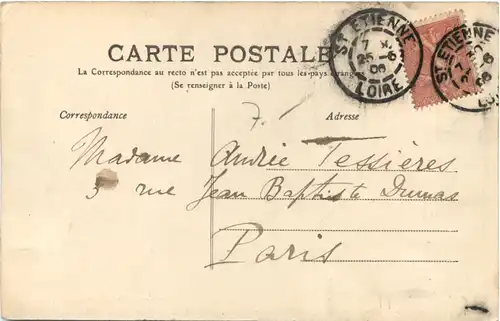 CARTE POSTALE
La Correspondance au recto n'est pas acceptée par tous les pays étrangers
(Se renseigner à la Poste)
ST ETIENNE
25 -6
06
LOIRE
ST ETIENNE
Correspondance
Adresse
7.
Madame Andrée Tessières
5 rue Jean Baptiste Dumas
Paris